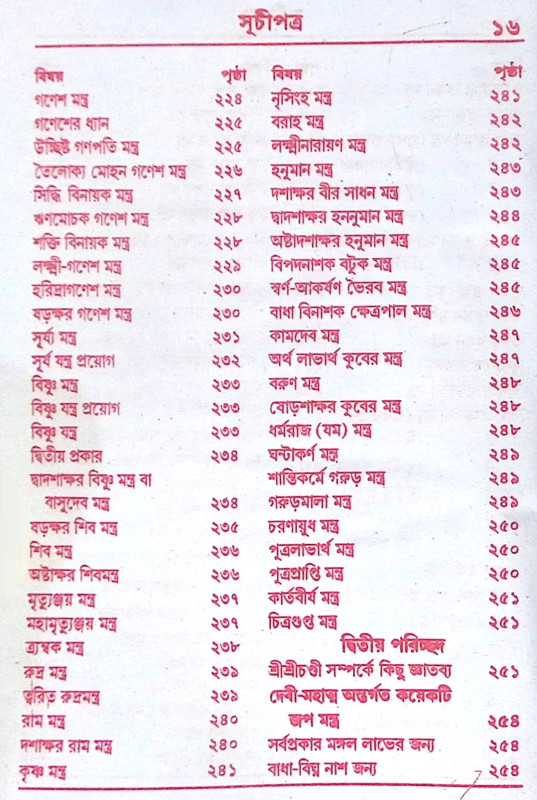 সূচীপত্র ১৬
বিষয় পৃষ্ঠা
গণেশ মন্ত্র ২২৪
গণেশের ধ্যান ২২৫
উচ্ছিষ্ট গণপতি মন্ত্র ২২৫
তৈলোক্য মোহন গণেশ মন্ত্র ২২৬
সিদ্ধি বিনায়ক মন্ত্র ২২৭
ঋণমোচক গণেশ মন্ত্র ২২৮
শক্তি বিনায়ক মন্ত্র ২২৮
লক্ষ্মী-গণেশ মন্ত্র ২২৯
হরিদ্রাগণেশ মন্ত্র ২৩০
ষড়ক্ষর গণেশ মন্ত্র ২৩০
সূর্য্য মন্ত্র ২৩১
সূর্য যন্ত্র প্রয়োগ ২৩২
বিষ্ণু মন্ত্র ২৩৩
বিষ্ণু যন্ত্র প্রয়োগ ২৩৩
বিষ্ণু যন্ত্র ২৩৩
দ্বিতীয় প্রকার ২৩৪
দ্বাদশাক্ষর বিষ্ণু মন্ত্র বা
বাসুদেব মন্ত্র ২৩৪
ষড়ক্ষর শিব মন্ত্র ২৩৫
শিব মন্ত্র ২৩৬
অষ্টাক্ষর শিবমন্ত্র ২৩৬
মৃত্যুঞ্জয় মন্ত্র ২৩৭
মহামৃত্যুঞ্জয় মন্ত্র ২৩৭
ত্র্যম্বক মন্ত্র ২৩৮
রুদ্র মন্ত্র ২৩৯
ত্বরিত রুদ্রমন্ত্র ২৩৯
রাম মন্ত্র ২৪০
দশাক্ষর রাম মন্ত্র ২৪০
কৃষ্ণ মন্ত্র ২৪১
বিষয় পৃষ্ঠা
নৃসিংহ মন্ত্র ২৪১
বরাহ মন্ত্র ২৪২
লক্ষ্মীনারায়ণ মন্ত্র ২৪২
হনুমান মন্ত্র ২৪৩
দশাক্ষর বীর সাধন মন্ত্র ২৪৩
দ্বাদশাক্ষর হননুমান মন্ত্র ২৪৪
অষ্টাদশাক্ষর হনুমান মন্ত্র ২৪৫
বিপদনাশক বটুক মন্ত্র ২৪৫
স্বর্ণ-আকর্ষণ ভৈরব মন্ত্র ২৪৫
বাধা বিনাশক ক্ষেত্রপাল মন্ত্র ২৪৬
কামদেব মন্ত্র ২৪৭
অর্থ লাভার্থ কুবের মন্ত্র ২৪৭
বরুণ মন্ত্র ২৪৮
ষোড়শাক্ষর কুবের মন্ত্র ২৪৮
ধর্মরাজ (যম) মন্ত্র ২৪৮
ঘন্টাকর্ণ মন্ত্র ২৪৯
শান্তিকর্মে গরুড় মন্ত্র ২৪৯
গরুড়মালা মন্ত্র ২৪৯
চরণায়ুধ মন্ত্র ২৫০
পুত্রলাভার্থ মন্ত্র ২৫০
পুত্রপ্রাপ্তি মন্ত্র ২৫০
কার্তবীর্য মন্ত্র ২৫১
চিত্রগুপ্ত মন্ত্র ২৫১
দ্বিতীয় পরিচ্ছদ
শ্রীশ্রীচণ্ডী সম্পর্কে কিছু জ্ঞাতব্য ২৫১
দেবী-মহাত্ম অন্তর্গত কয়েকটি
জপ মন্ত্র ২৫৪
সর্বপ্রকার মঙ্গল লাভের জন্য ২৫৪
বাধা-বিঘ্ন নাশ জন্য ২৫৪